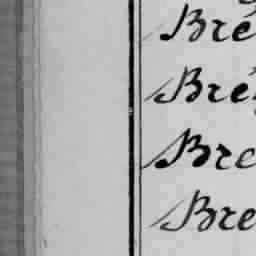 Bré
Bré
Bre
Bre